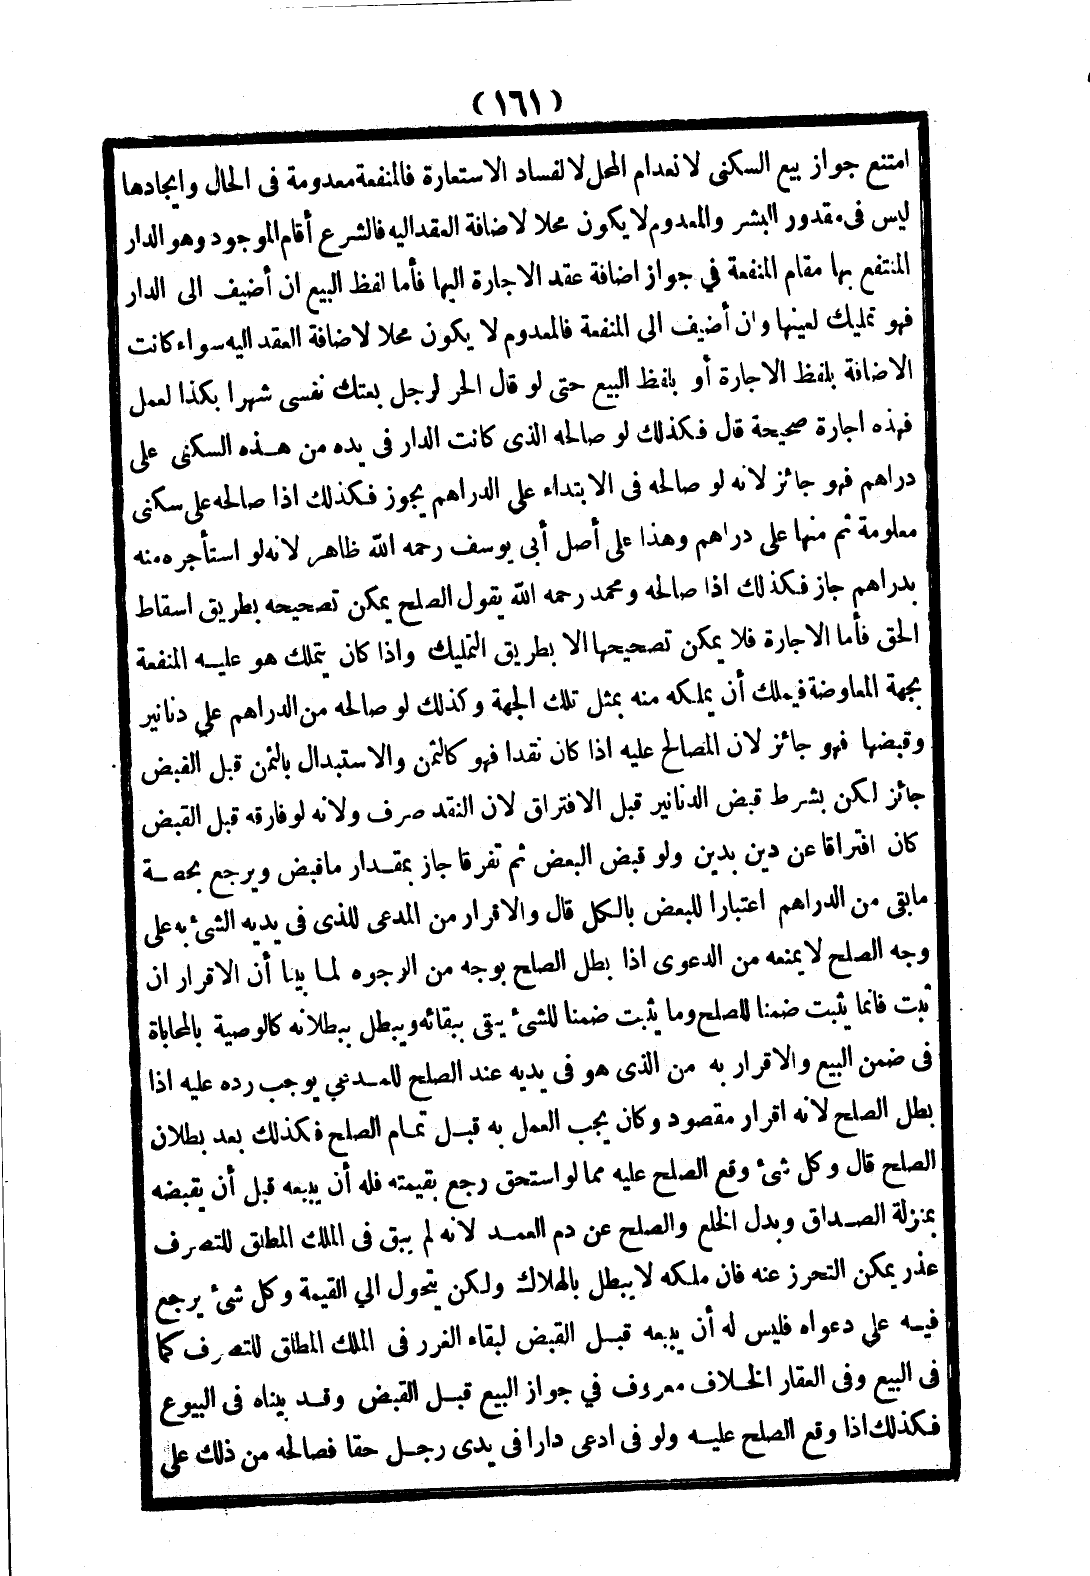 (١٦١)
امتنع جواز بيع السكنى لانعدام المحل لا لفساد الاستعارة فالمنفعة معدومة فى الحال وايجادها
ليس فى مقدور البشر والمعدوم لا يكون محلا لاضافة العقد اليه فالشرع أقام الموجود وهو الدار
المنتفع بها مقام المنفعة في جواز اضافة عقد الاجارة اليها فأما لفظ البيع ان أضيف الى الدار
فهو تمليك لعينها وان أضيف الى المنفعة فالمعدوم لا يكون محلا لاضافة العقد اليه سواء كانت
الاضافة بلفظ الاجارة أو بلفظ البيع حتى لو قال الحر لرجل بعتك نفسى شهرا بكذا لعمل
فهذه اجارة صحيحة قال فكذلك لو صالحه الذى كانت الدار فى يده من هذه السكنى على
دراهم فهو جائز لانه لو صالحه فى الابتداء على الدراهم يجوز فكذلك اذا صالحه على سكنى
معلومة ثم منها على دراهم وهذا على أصل أبي يوسف رحمه الله ظاهر لانه لو استأجره منه
بدراهم جاز فكذلك اذا صالحه ومحمد رحمه الله يقول الصلح يمكن تصحيحه بطريق اسقاط
الحق فأما الاجارة فلا يمكن تصحيحها الا بطريق التمليك واذا كان يتملك هو عليه المنفعة
بجهة المعاوضة فيملك أن يملكه منه بمثل تلك الجهة وكذلك لو صالحه من الدراهم على دنانير
وقبضها فهو جائز لان المصالح عليه اذا كان نقدا فهو كالثمن والاستبدال بالثمن قبل القبض
جائز لكن بشرط قبض الدنانير قبل الافتراق لان النقد صرف ولانه لو فارقه قبل القبض
كان افتراقا عن دين بدين ولو قبض البعض ثم تفرقا جاز بمقدار ما قبض ويرجع بحصة
مابقى من الدراهم اعتبارا للبعض بالكل قال والاقرار من المدعى للذى فى يديه الشئ به على
وجه الصلح لا يمنعه من الدعوى اذا بطل الصلح بوجه من الوجوه لما بينا أن الاقرار ان
ثبت فانما يثبت ضمنا للصلح وما يثبت ضمنا للشئ يبقى ببقائه ويبطل ببطلانه كالوصية بالمحاباة
فى ضمن البيع والاقرار به من الذى هو فى يديه عند الصلح للمدعي يوجب رده عليه اذا
بطل الصلح لانه اقرار مقصود وكان يجب العمل به قبل تمام الصلح فكذلك بعد بطلان
الصلح قال وكل شئ وقع الصلح عليه مما لو استحق رجع بقيمته فله أن يبيعه قبل أن يقبضه
بمنزلة الصداق وبدل الخلع والصلح عن دم العمد لانه لم يبق فى الملك المطلق للتصرف
عذر يمكن التحرز عنه فان ملكه لا يبطل بالهلاك ولكن يتحول الي القيمة وكل شئ يرجع
فيه على دعواه فليس له أن يبيعه قبل القبض لبقاء الغرر فى الملك المطلق للتصرف كما
فى البيع وفى العقار الخلاف معروف في جواز البيع قبل القبض وقد بيناه فى البيوع
فكذلك اذا وقع الصلح عليه ولو فى ادعى دارا فى يدى رجل حقا فصالحه من ذلك على